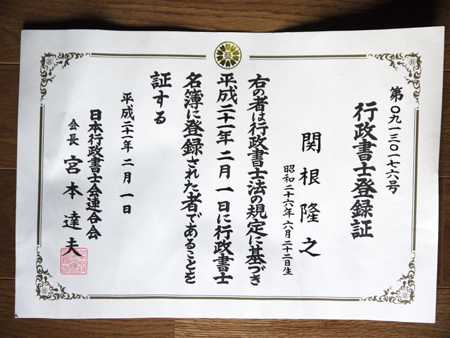 第〇九一三〇一七六号
行政書士登録証
関根隆之
昭和二十六年六月二十二日生
右の者は行政書士法の規定に基づき
平成二十一年二月一日に行政書士
名簿に登録された者であることを
証する
平成二十一年二月一日
日本行政書士会連合会
会長 宮本達夫